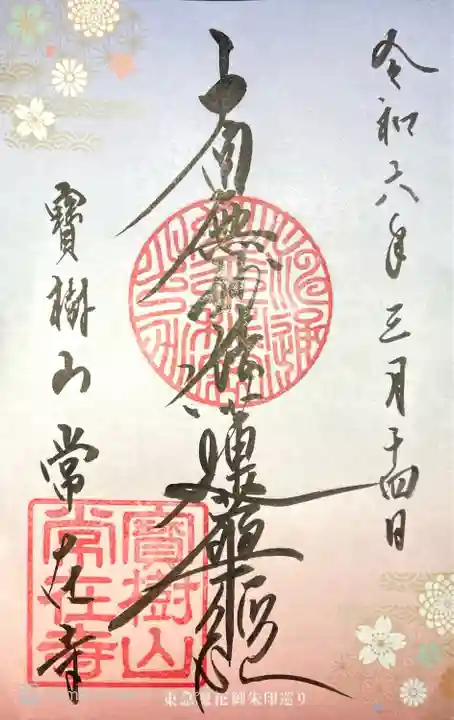 令和六年三月十四日
南無妙法蓮華経
寶樹山常在寺
寶樹山
常在寺
東急線花御朱印巡り